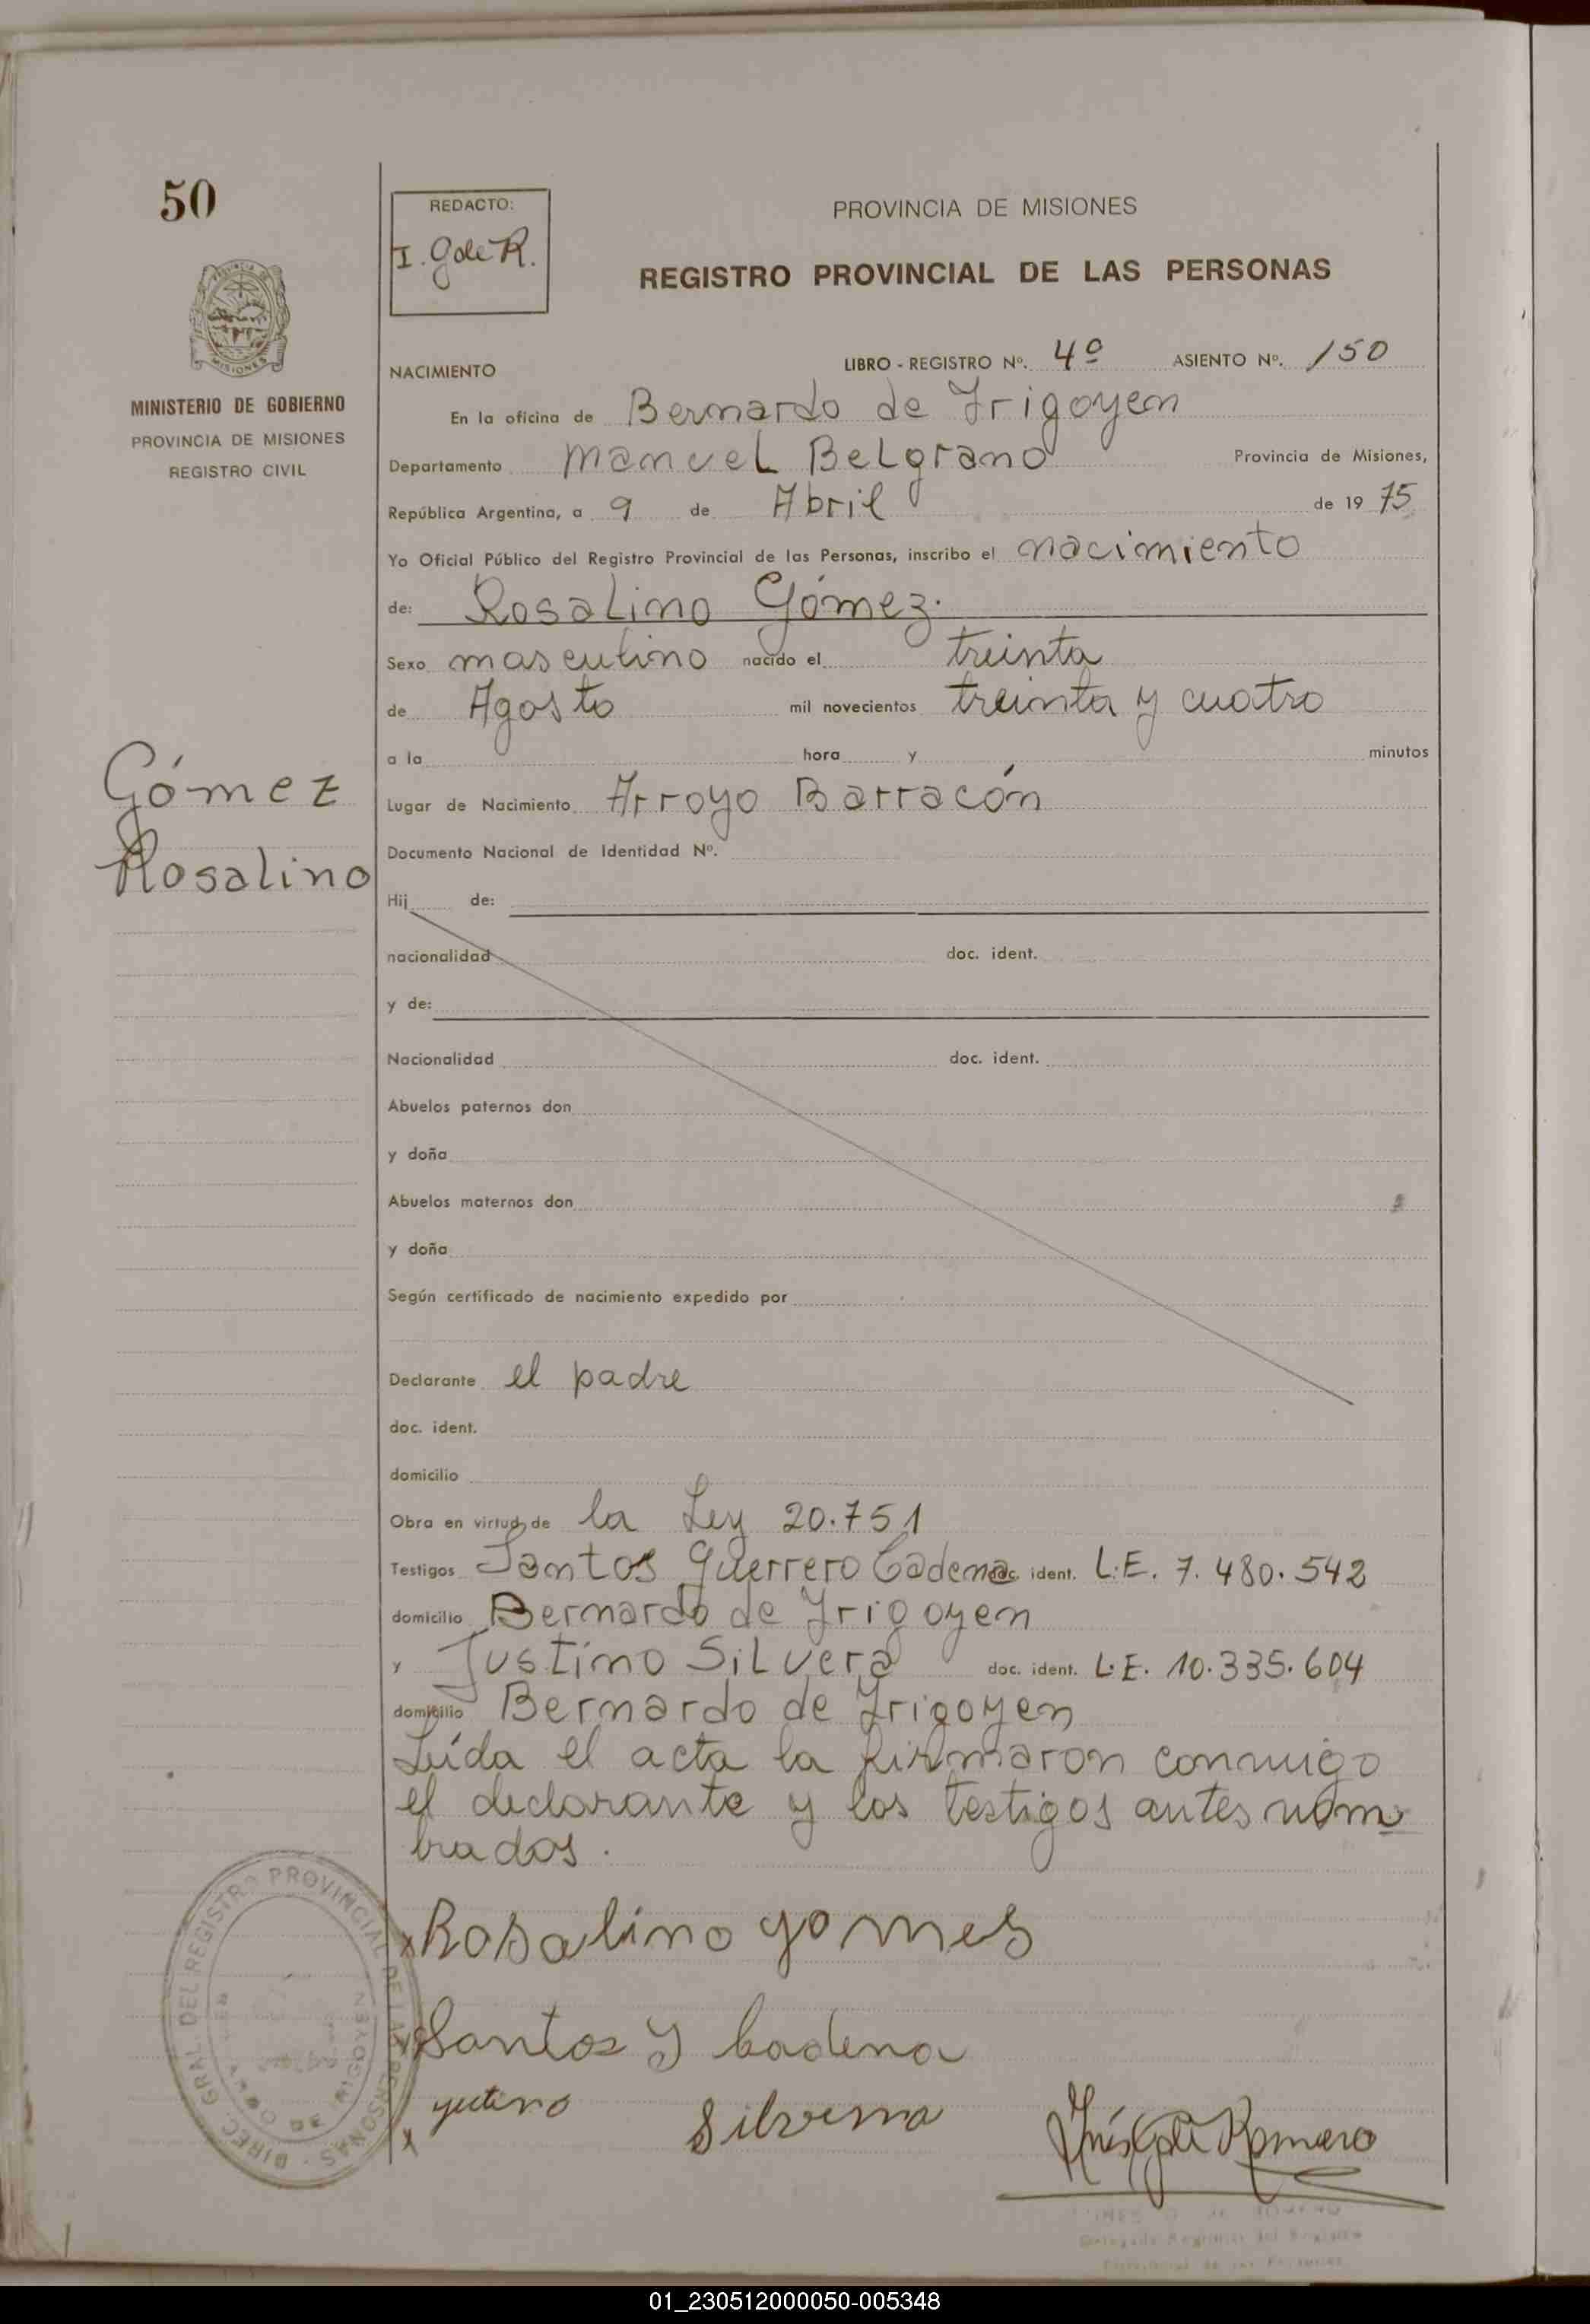 50
REDACTO:
I. G de R.
PROVINCIA DE MISIONES
REGISTRO PROVINCIAL DE LAS PERSONAS
MISIONES
MINISTERIO DE GOBIERNO
PROVINCIA DE MISIONES
REGISTRO CIVIL
NACIMIENTO LIBRO - REGISTRO Nº. 4º ASIENTO Nº. 150
En la oficina de Bernardo de Irigoyen
Departamento Manuel Belgrano Provincia de Misiones,
República Argentina, a 9 de Abril de 1975
Yo Oficial Público del Registro Provincial de las Personas, inscribo el nacimiento
de: Rosalino Gómez.
Sexo masculino nacido el treinta
de Agosto mil novecientos treinta y cuatro
a la hora y minutos
Gómez
Rosalino
Lugar de Nacimiento Arroyo Barracón
Documento Nacional de Identidad Nº.
Hij de:
nacionalidad doc. ident.
y de:
Nacionalidad doc. ident.
Abuelos paternos don
y doña
Abuelos maternos don
y doña
Según certificado de nacimiento expedido por
Declarante el padre
doc. ident.
domicilio
Obra en virtud de la Ley 20.751
Testigos Santos Guerrero Cadena doc. ident. L.E. 7.480.542
domicilio Bernardo de Irigoyen
y Justino Silvera doc. ident. L.E. 10.335.604
domicilio Bernardo de Irigoyen
Leída el acta la firmaron conmigo
el declarante y los testigos antes nom
brados.
x Rosalino gomes
Santos y cadena
x Silverna
Inés G de Romero
DIREC. GRAL. DEL REGISTRO PROVINCIAL DE LAS PERSONAS
DE IRIGOYEN
01_230512000050-005348